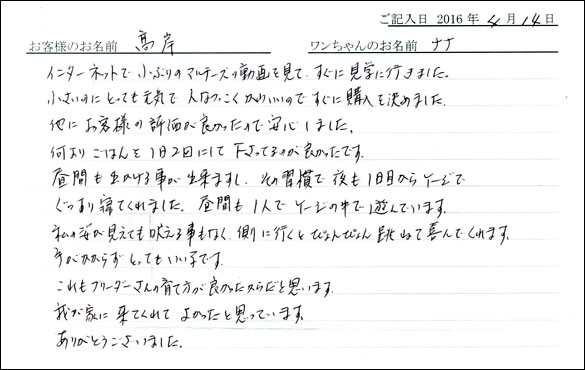 ご記入日 2016年 4月 14日
お客様のお名前 高岸 ワンちゃんのお名前 ナナ
インターネットで小ぶりのマルチーズの動画を見て、すぐに見学に行きました。
小さいのにとっても元気で人なつっこくかわいいのですぐに購入を決めました。
他にお客様の評価が良かったので安心しました。
何よりごはんを1日2回にして下さってるのが良かったです。
昼間も出かける事が出来ますし、その習慣で夜も1日目からケージで
ぐっすり寝てくれました。昼間も1人でケージの中で遊んでいます。
私の姿が見えても吠える事もなく、側に行くとぴょんぴょん跳ねて喜んでくれます。
手がかからずとってもいい子です。
これもブリーダーさんの育て方が良かったからだと思います。
我が家に来てくれてよかったと思っています。
ありがとうございました。